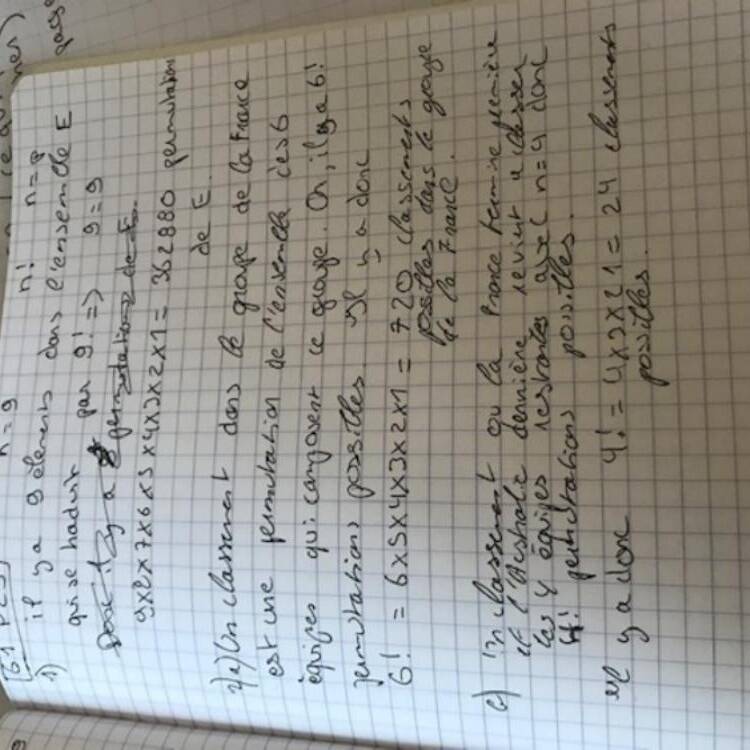 n=9 n! n=9
1) il y a 9 éléments dans l'ensemble E
qui se traduit par 9! => 9=9
Donc il y a permutations de E.
9x8x7x6x5x4x3x2x1= 362880 permutation
de E.
2)a) Un classement dans le groupe de la France
est une permutation de l'ensemble des 6
équipes qui composent ce groupe. Or, il y a 6!
permutations possibles Il y a donc
6! = 6x5x4x3x2x1 = 720 classements
possibles dans le groupe
de la France.
c) Un classement où la France termine première
et l'Australie dernière revient à classer
les 4 équipes restantes avec n=4 donc
4! permutations possibles.
Il y a donc 4! = 4x3x2x1 = 24 classements
possibles.